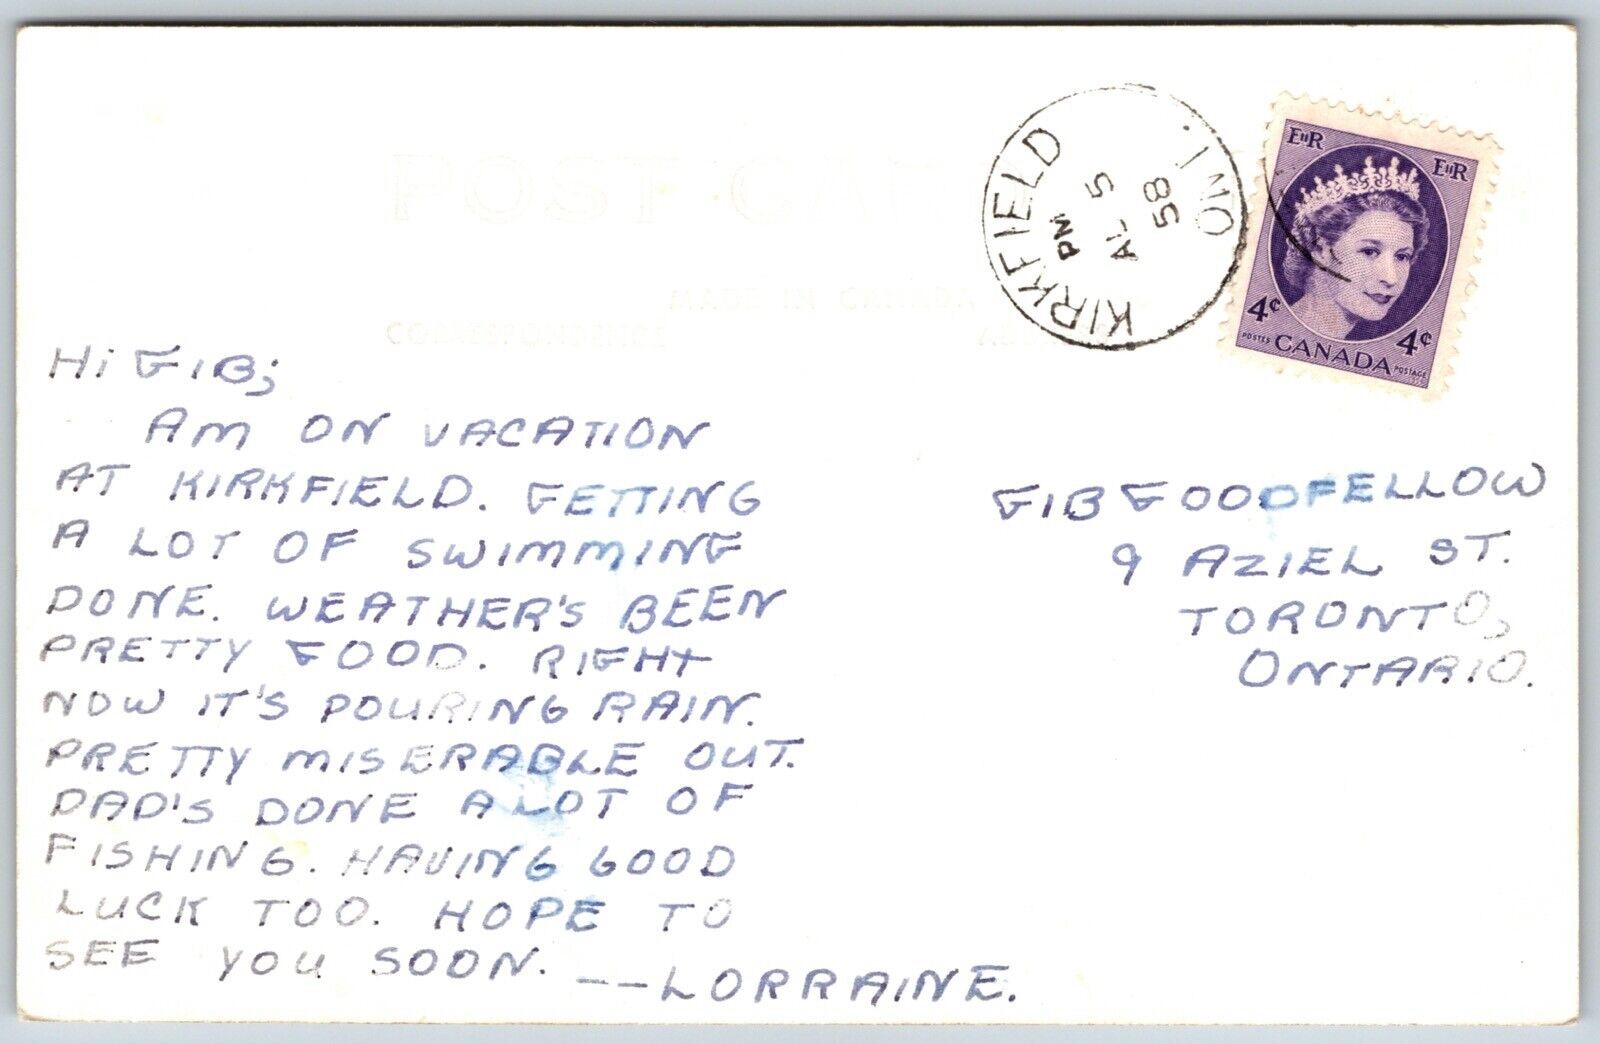 POST CARD
MADE IN CANADA
CORRESPONDENCE
KIRKFIELD
ONT.
PM
AL 5
58
EIIR
EIIR
4¢
4¢
POSTES CANADA POSTAGE
Hi GIB;
AM ON VACATION
AT KIRKFIELD. GETTING
A LOT OF SWIMMING
DONE. WEATHER'S BEEN
PRETTY GOOD. RIGHT
NOW IT'S POURING RAIN.
PRETTY MISERABLE OUT.
DAD'S DONE A LOT OF
FISHING. HAVING GOOD
LUCK TOO. HOPE TO
SEE YOU SOON.
--LORRAINE.
GIB GOODFELLOW
9 AZIEL ST.
TORONTO,
ONTARIO.